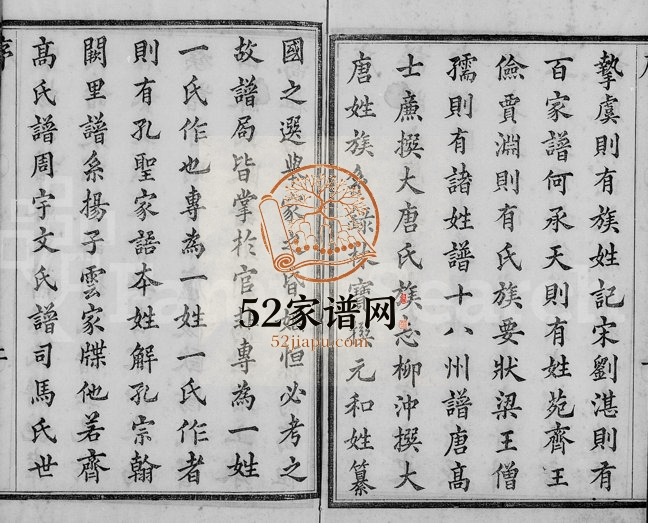 摯虞則有族姓記宋劉湛則有
百家譜何承天則有姓苑齊王
儉賈淵則有氏族要狀梁王僧
孺則有諸姓譜十八州譜唐高
士廉撰大唐氏族志柳沖撰大
唐姓族系錄林寶撰元和姓纂
國之選典家之昏姻恒必考之
故譜局皆掌於官非專為一姓
一氏作也專為一姓一氏作者
則有孔聖家語本姓解孔宗翰
闕里譜系揚子雲家牒他若齊
高氏譜周宇文氏譜司馬氏世
52家谱网
52jiapu.com